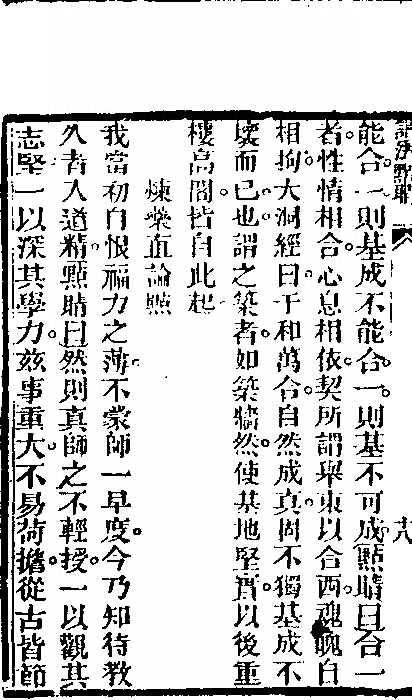 能合一則基成不能合一則基不可成點睛曰合一
者性情相合心息相依契所謂舉東以合西魂魄自
相拘大洞經曰千和萬合自然成真固不獨基成不
壞而已也謂之築者如築牆然使基地堅實以後重
樓高閣皆自此起
煉藥直論點
我當初自恨福力之薄不蒙師一早度今乃知待教
久者入道精點睛曰然則真師之不輕授一以觀其
志堅一以深其學力茲事重大不易荷擔從古皆節